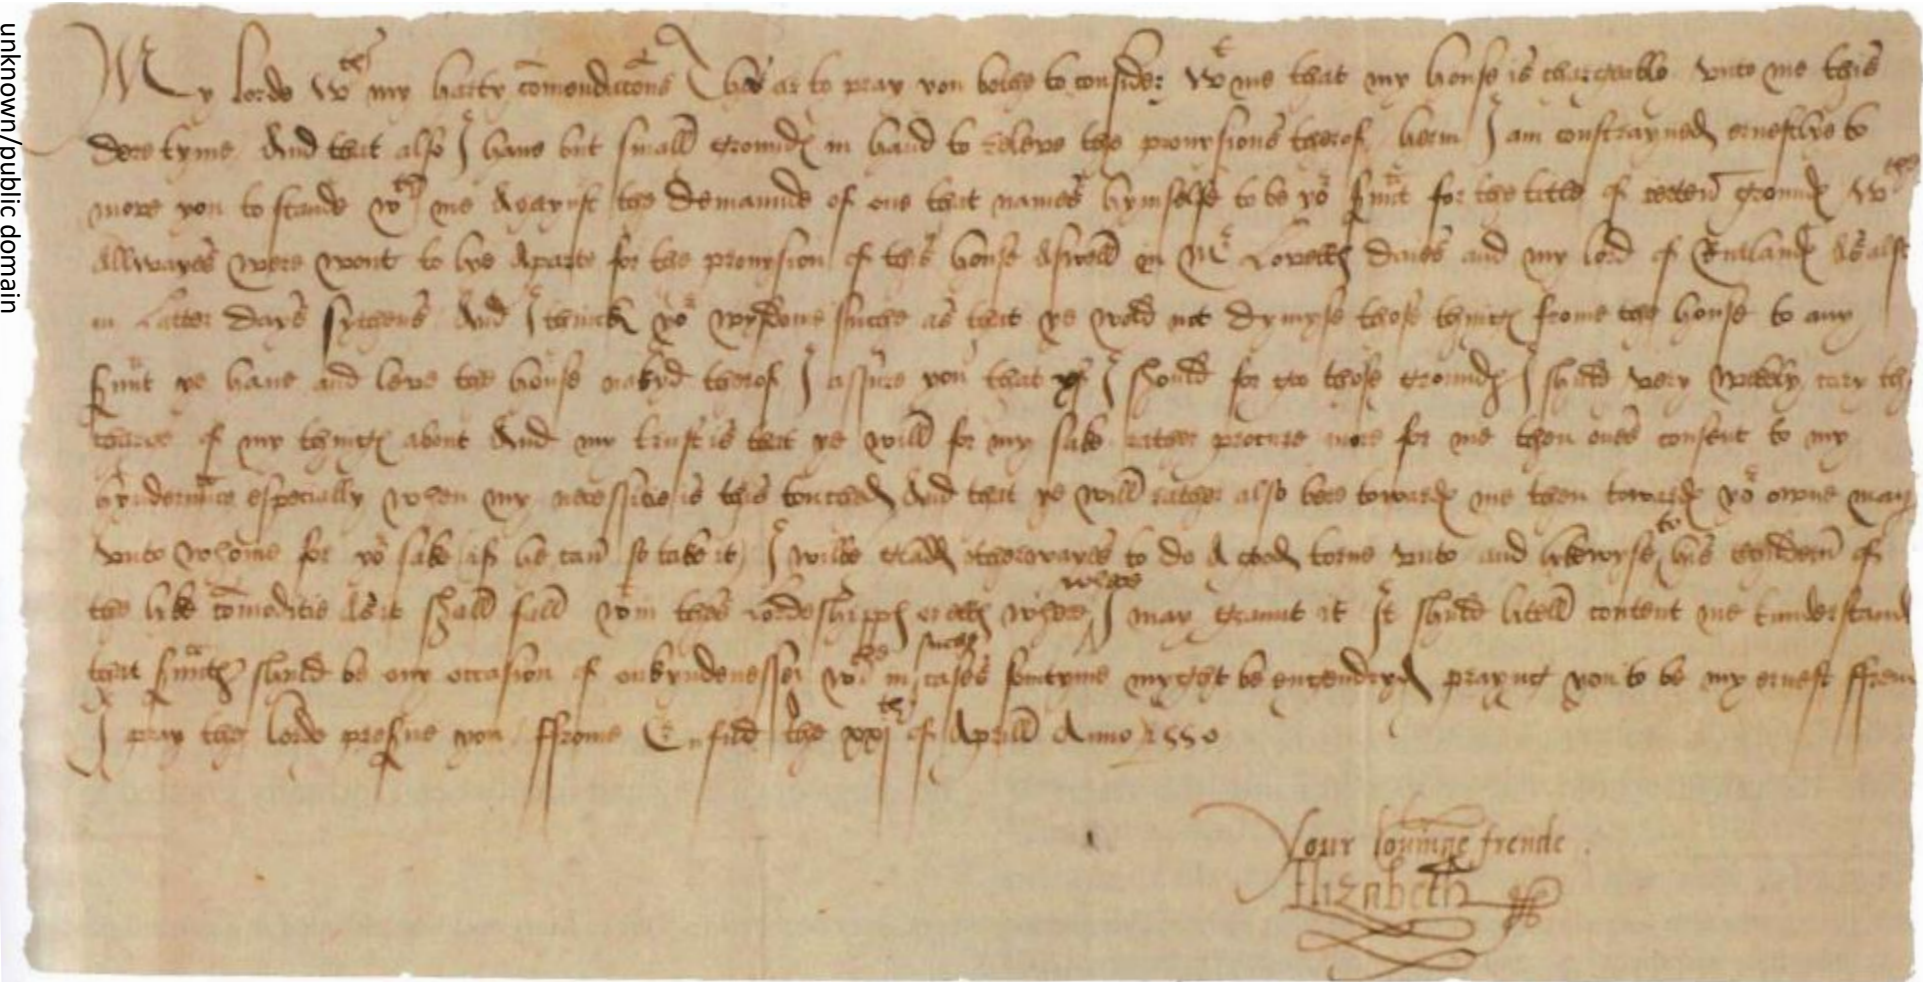 My lorde wth my harty comendacons Thes ar to pray you bothe to consider wt me that my house is chargeable vnto me this
dere tyme And that also I haue but small groundes in hand to releve the prouysions therof herin I am constrayned ernestlye to
move you to stande wth me Agaynst the demaunde of one that names hymselfe to be yor sruant for the title of certen groundes wche
Allwayes were wont to lye Aparte for the prouysion of this house Aswell in Mr Lovelles daies and my lord of Rutlandes As also
in Latter days sythens And I think yor wysdome suche as that ye wold not dymyse those thinges frome the house to any
sruant ye haue and leve the house nakyd therof I assure you that yf I should for go those groundes I shuld very
of my thinges about And my trust is that ye will for my sake rather procure more for me then ones consent to my
hynderance especially when my necessitie is this touched And that ye will rather also bere towardes me then towardes yor owne man
vnto whome for yor sake (if he can so take it) I wilbe glad otherwayes to do A good torne vnto and lykewyse to his childern of
the like comoditie As it shall fall wtin thes lordeshippes or elles where I where may graunt it It shuld litell content me tunderstand
that sruantes shuld be any occasion of onkyndenesse wche in suche cases somtyme myght be engendryd prayng you to be my ernest ffrend
I pray the lorde presrue you ffrome Enfild the xxjth of Aprill Anno 1550
Your louinge frende
Elizabeth
unknown/public domain